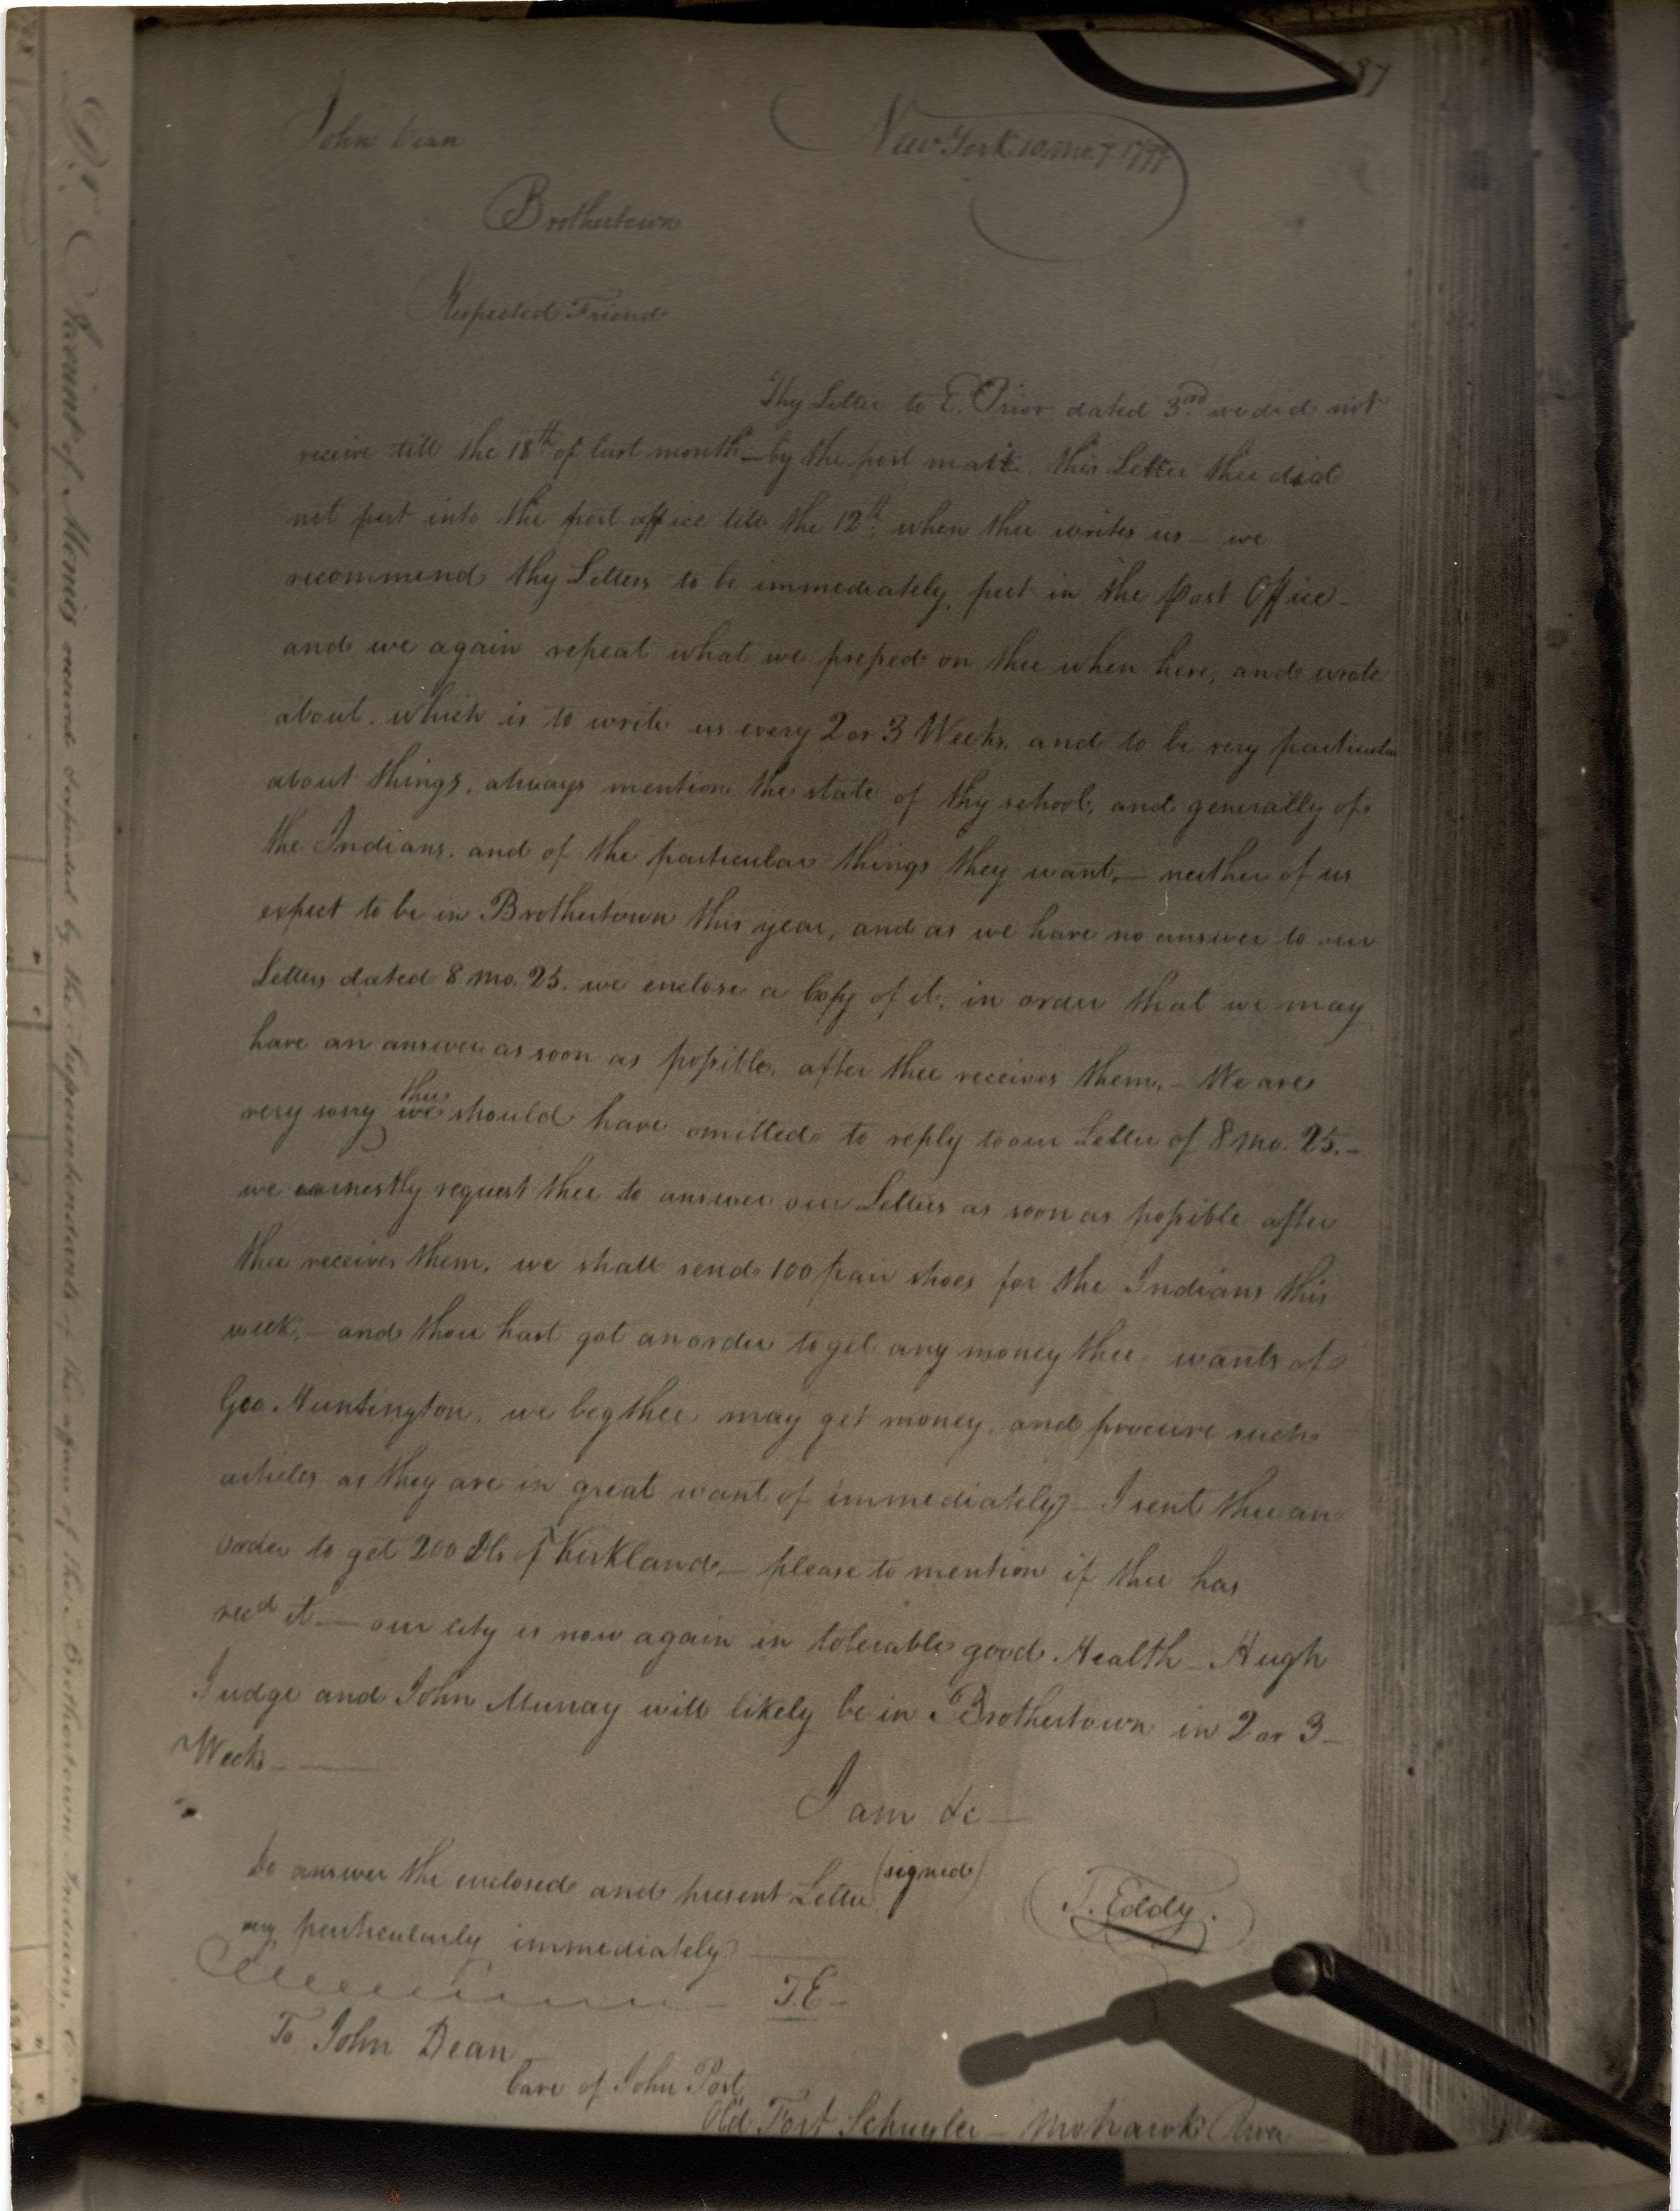 87
John Dean
New York 10 mo. 7 1799
Brothertown
Respected Friend
Thy Letter to E. Prior dated 3rd we did not
receive till the 18th of last month — by the post mark this Letter thee did
not put into the post office till the 12th when thee writes us — we
recommend thy Letters to be immediately put in the post Office —
and we again repeat what we pressed on thee when here, and wrote
about, which is to write us every 2 or 3 Weeks, and to be very particular
about things, always mention the state of thy school, and generally of
the Indians, and of the particular things they want, — neither of us
expect to be in Brothertown this year, and as we have no answer to our
Letters dated 8 mo. 25. we enclose a Copy of it, in order that we may
have an answer as soon as possible, after thee receives them, — We are
very sorry we thee should have omitted to reply to our Letter of 8 mo. 25. —
we earnestly request thee to answer our Letters as soon as possible after
thee receives them, we shall send 100 pair shoes for the Indians this
week, — and thou hast got an order to get any money thee wants of
Geo. Huntington, we beg thee may get money, and procure such
articles as they are in great want of immediately I sent thee an
order to get 200 Dls of Kirkland, — please to mention if thee has
recd it — our city is now again in tolerable good Health — Hugh
Judge and John Murray will likely be in Brothertown in 2 or 3 —
Weeks —
I am &c —
(signed)
Do answer the enclosed and present Letter
T. Eddy.
very particularly immediately
T.E —
To John Dean
Care of John Post
Old Fort Schuyler — Mohawk River
Account of Monies received & expended by the Superintendants of the affairs of the Brothertown Indians.